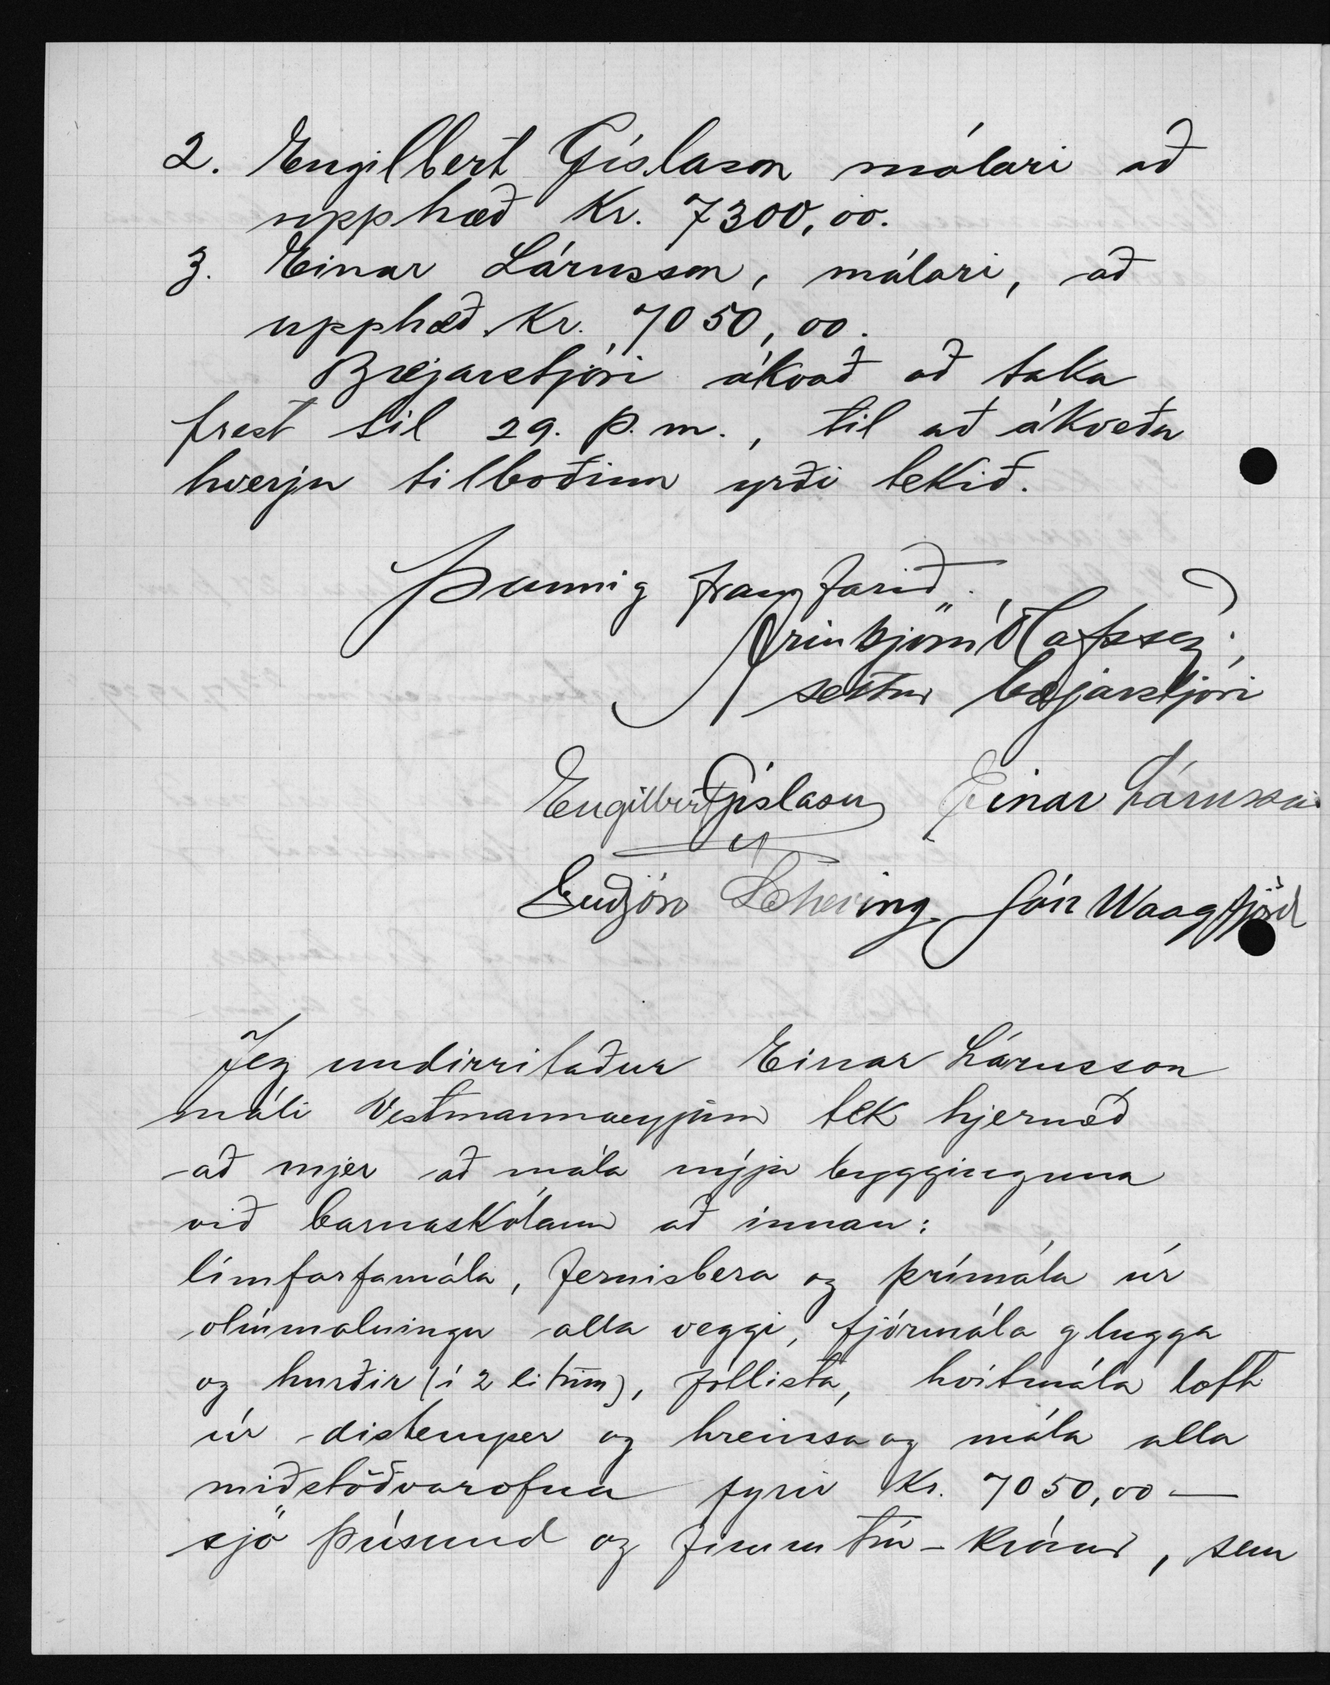 2. Engilbert Gíslason málari að
upphæð Kr. 7300,00.
3. Einar Lárusson, málari, að
upphæð Kr. 7050,00.
Bæjarstjóri ákvað að taka
frest til 29. þ.m., til að ákveða
hverju tilboðinu yrði tekið.
Þannig framfarið.
Arinbjörn Ólafsson
settur bæjarstjóri
Engilbert Gíslason Einar Lárusson
Guðjón Scheving Jón Waagfjörð
Jeg undirritaður Einar Lárusson
máli Vestmannaeyjum tek hjermeð
að mjer að mála nýju bygginguna
við barnaskólann að innan:
límfarfamála, fernisbera og þrímála úr
olíumalningu alla veggi, fjórmála glugga
og hurðir (í 2 litum), fóllista, hvítmála loft
úr distemper og hreinsa og mála alla
miðstöðvarofna fyrir Kr. 7050,00 —
sjö þúsund og fimmtíu - krónur, sem